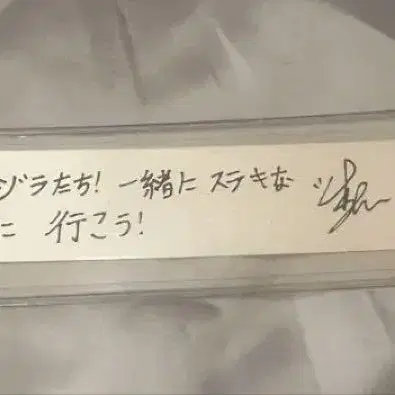 ゾラたち! 一緒に ステキな
に 行こう!